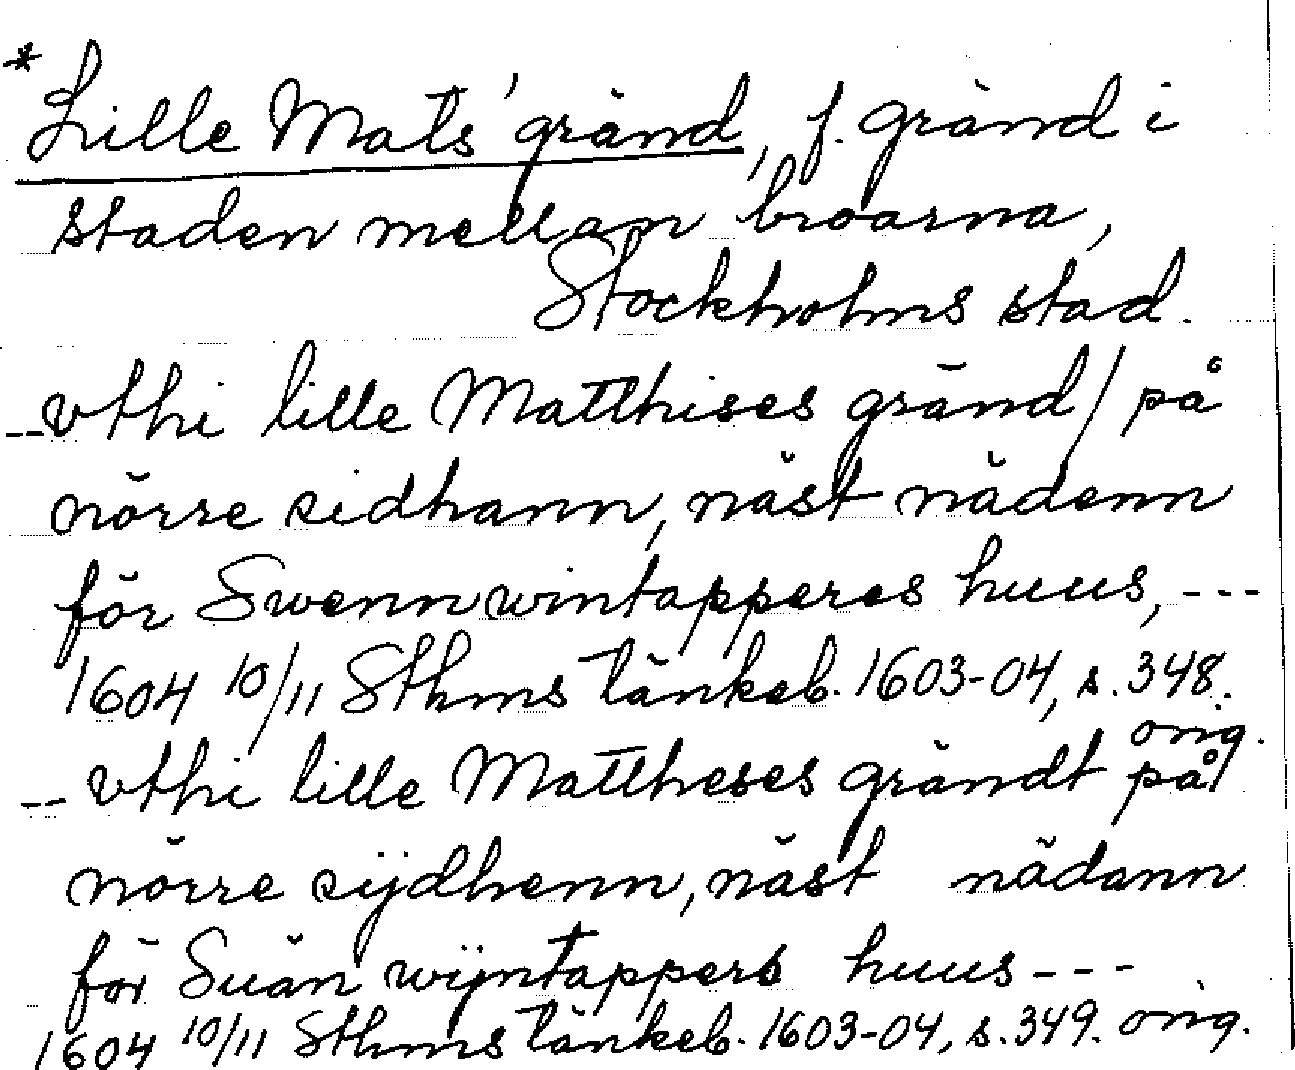 * Lille Mats' gränd, f. gränd i
staden mellan broarna,
Stockholms stad.
-- vthi lille Matthises gränd / på
nörre sidhann, näst nädenn
för Swenn wintapperes huus, ---
1604 10/11 Sthms tänkeb. 1603-04, s. 348.
orig.
-- vthi lille Mattheses grändt på
nörre sijdhenn, näst nädann
för Suän wijntappers huus ---
1604 10/11 Sthms tänkeb. 1603-04, s. 349. orig.